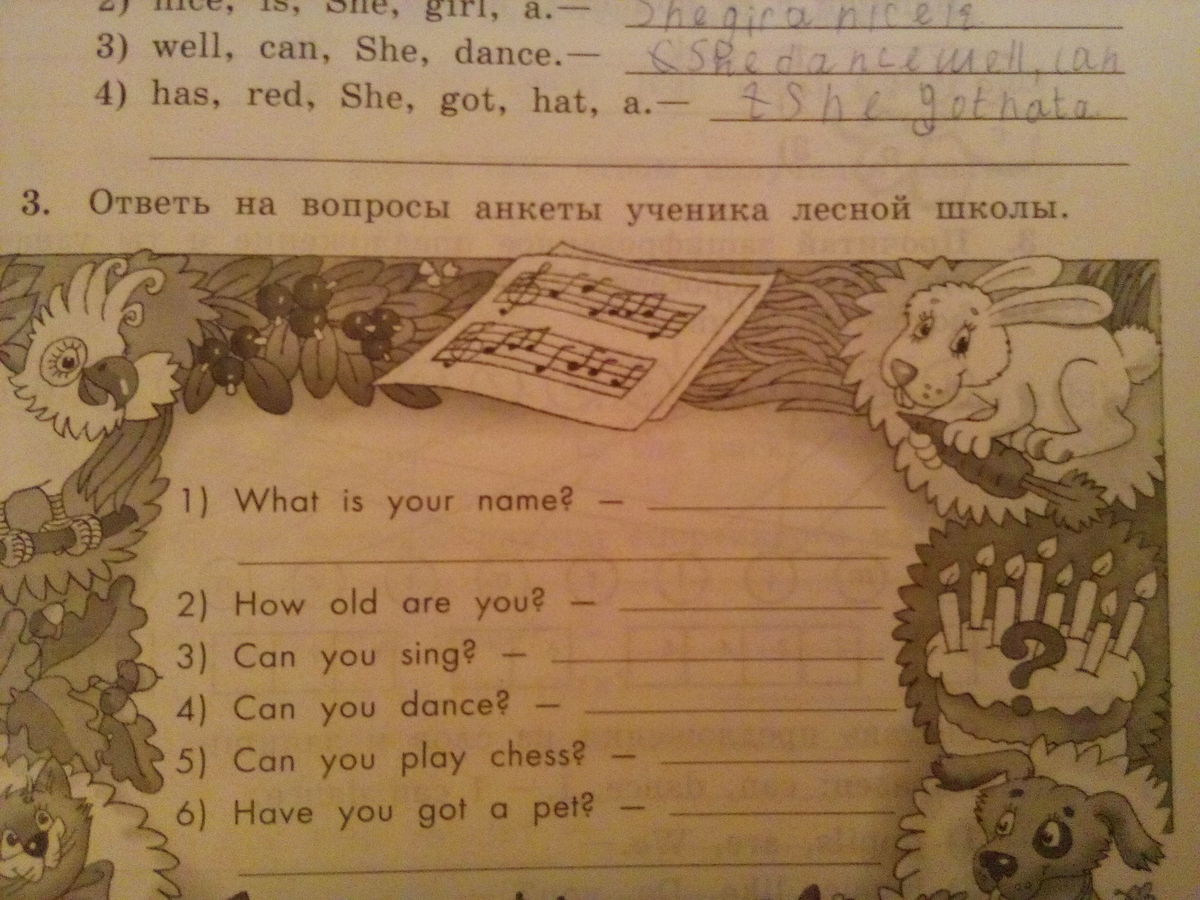 2) nice, is, She, girl, a.—
3) well, can, She, dance.— She dance well, can
4) has, red, She, got, hat, a.— She got hata
3. Ответь на вопросы анкеты ученика лесной школы.
1) What is your name? —
2) How old are you? —
3) Can you sing? —
4) Can you dance? —
5) Can you play chess? —
6) Have you got a pet? —
?